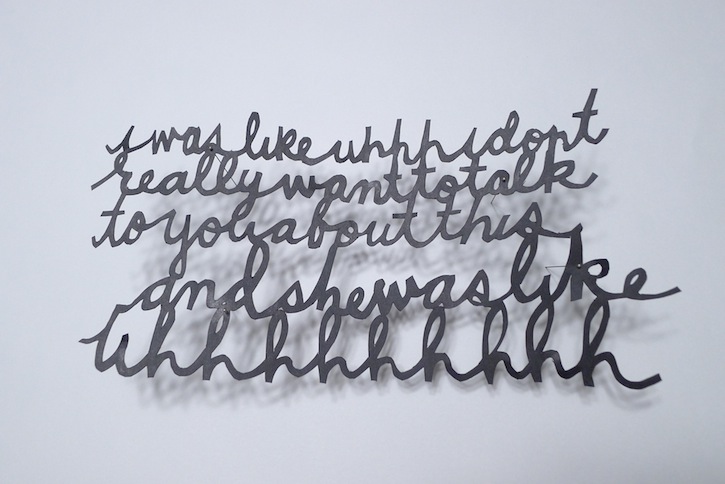 i was like uhhh i dont
really want to talk
to you about this
and she was like
uhhhhhhhhh